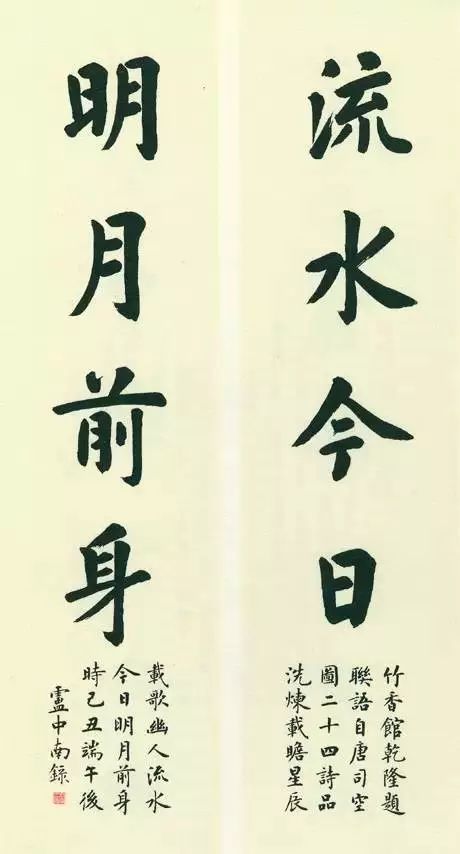 流水今日
竹香館乾隆題
聯語自唐司空
圖二十四詩品
洗煉載瞻星辰
明月前身
載歌幽人流水
今日明月前身
時己丑端午後
盧中南錄